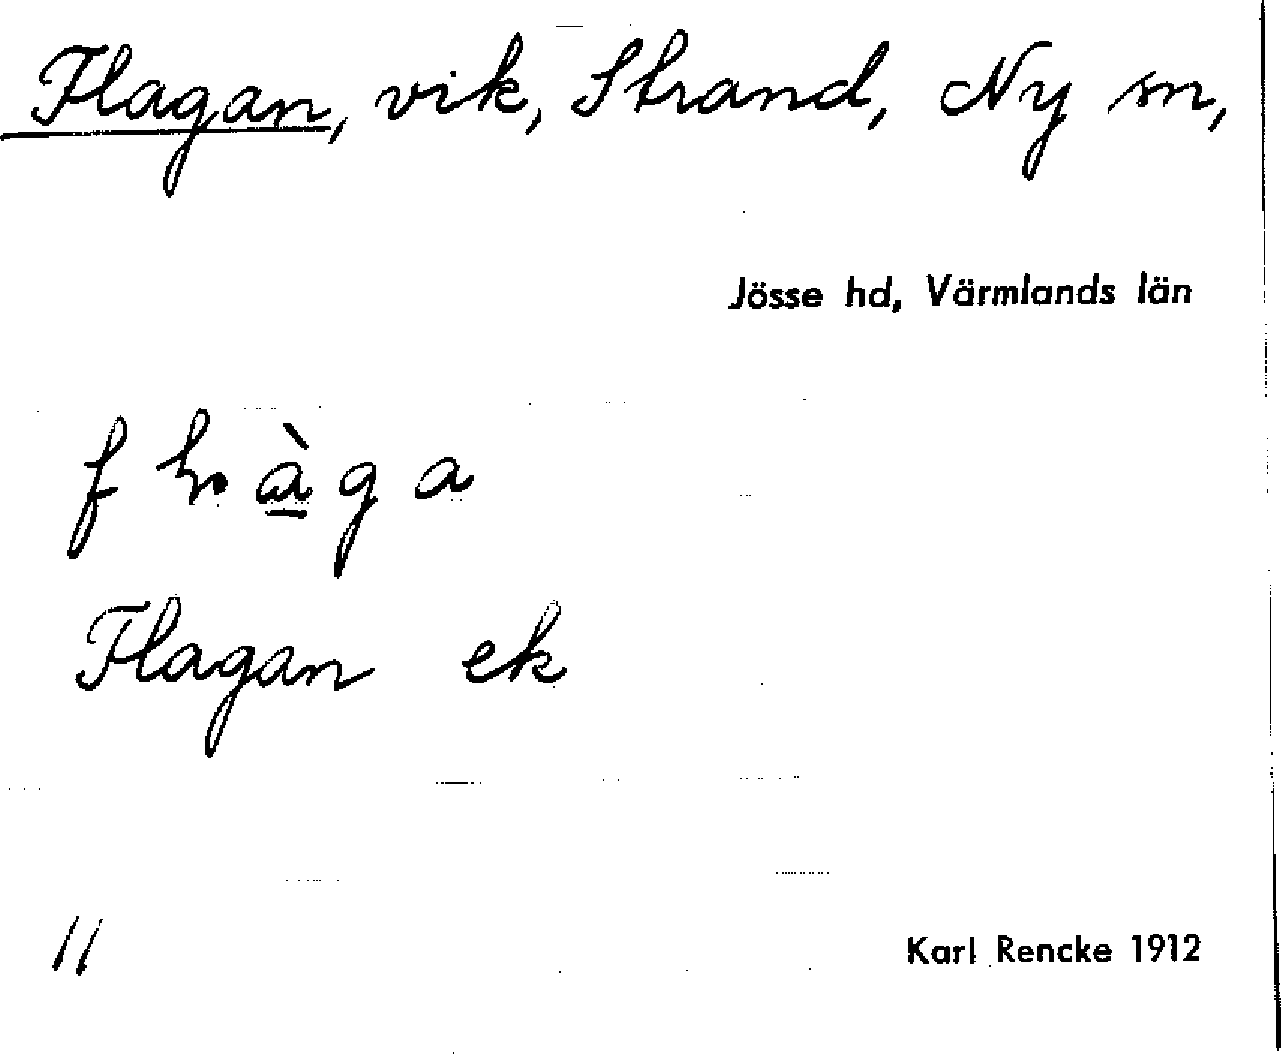 Flagan, vik, Strand, Ny sn,
Jösse hd, Värmlands län
Flagan ek
11
Karl Rencke 1912